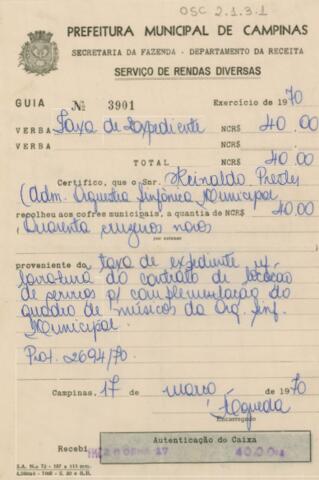 OSC 2.1.3.1
PREFEITURA MUNICIPAL DE CAMPINAS
SECRETARIA DA FAZENDA - DEPARTAMENTO DA RECEITA
SERVIÇO DE RENDAS DIVERSAS
GUIA Nº 3901 Exercício de 1970
VERBA Taxa de Expediente NCR$ 40.00
VERBA NCR$
TOTAL NCR$ 40.00
Certifico, que o Snr. Reinaldo
(Adm. Orquestra Sinfônica Municipal
recolheu aos cofres municipais, a quantia de NCR$ 40.00
Quarenta cruzeiros novos
por extenso
proveniente de taxa de expediente
lavratura do contrato de locação
de serviços p/ complementação do
quadro de músicos da Orq. Sinf.
Municipal.
Prot. 2694/70.
Campinas, 17 de março de 1970
Encarregado
Autenticação do Caixa
Recebi
40.00